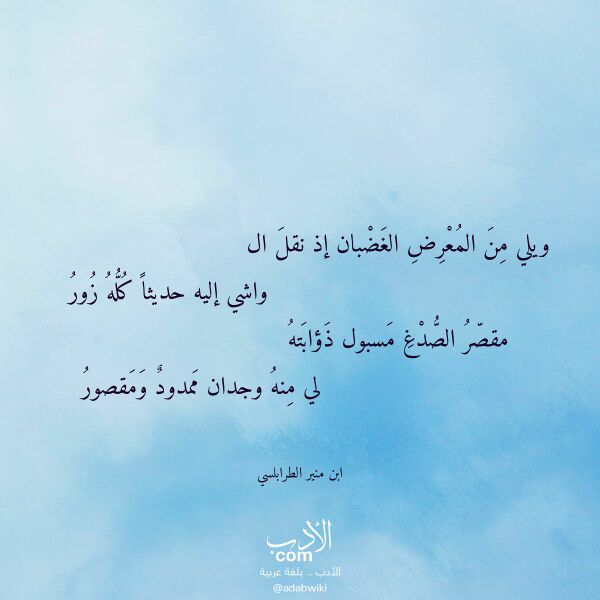 ويلي مِنَ المُعْرِضِ الغَضْبان إذ نقلَ ال
واشي إليه حديثاً كُلُّهُ زُورُ
مقصّرُ الصُّدْغِ مَسبول ذَؤابَتهُ
لي مِنهُ وجدان مَمدودٌ وَمَقصورُ
ابن منير الطرابلسي
الأدب
com
الأدب .. بلغة عربية
@adabwiki